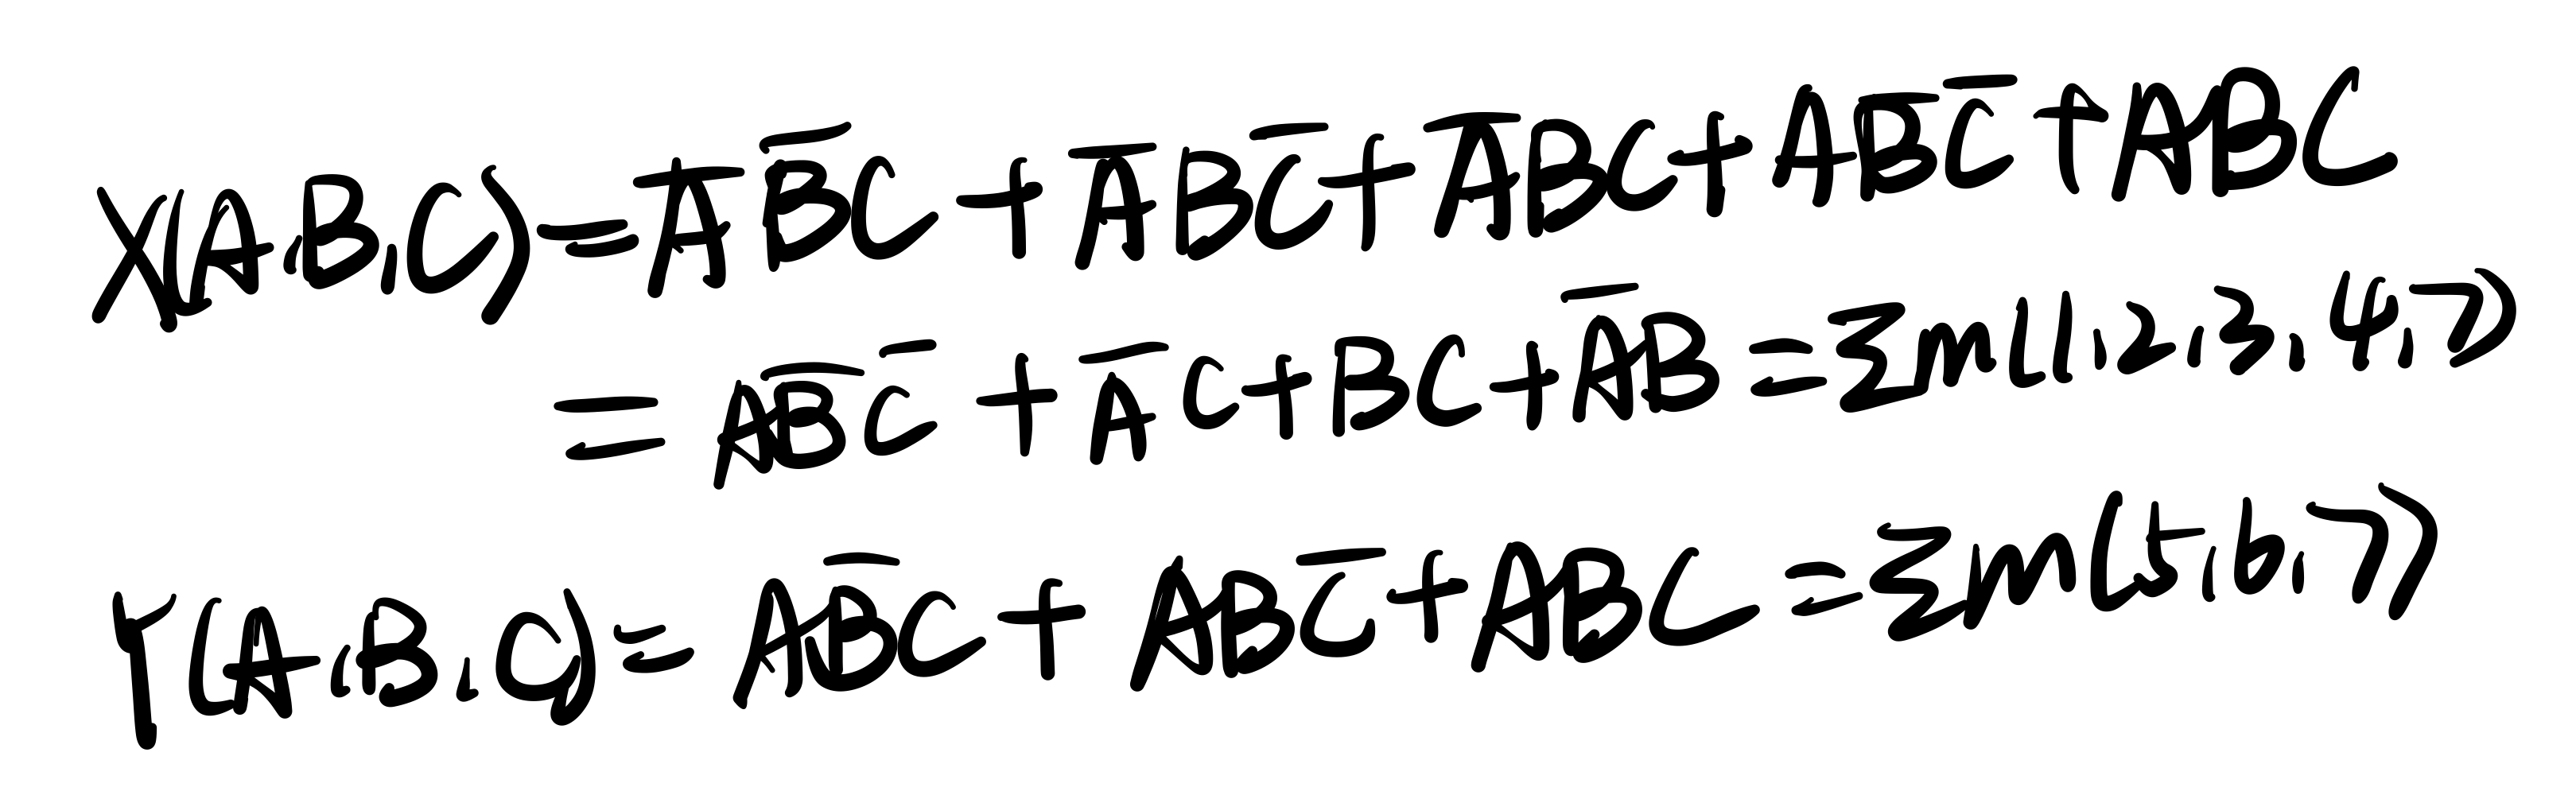 X(A,B,C)=A̅B̅C+A̅BC̅+A̅BC+AB̅C̅+ABC
=AB̅C̅+A̅C+BC+A̅B=Σm(1,2,3,4,7)
Y(A,B,C)=AB̅C+ABC̅+ABC=Σm(5,6,7)